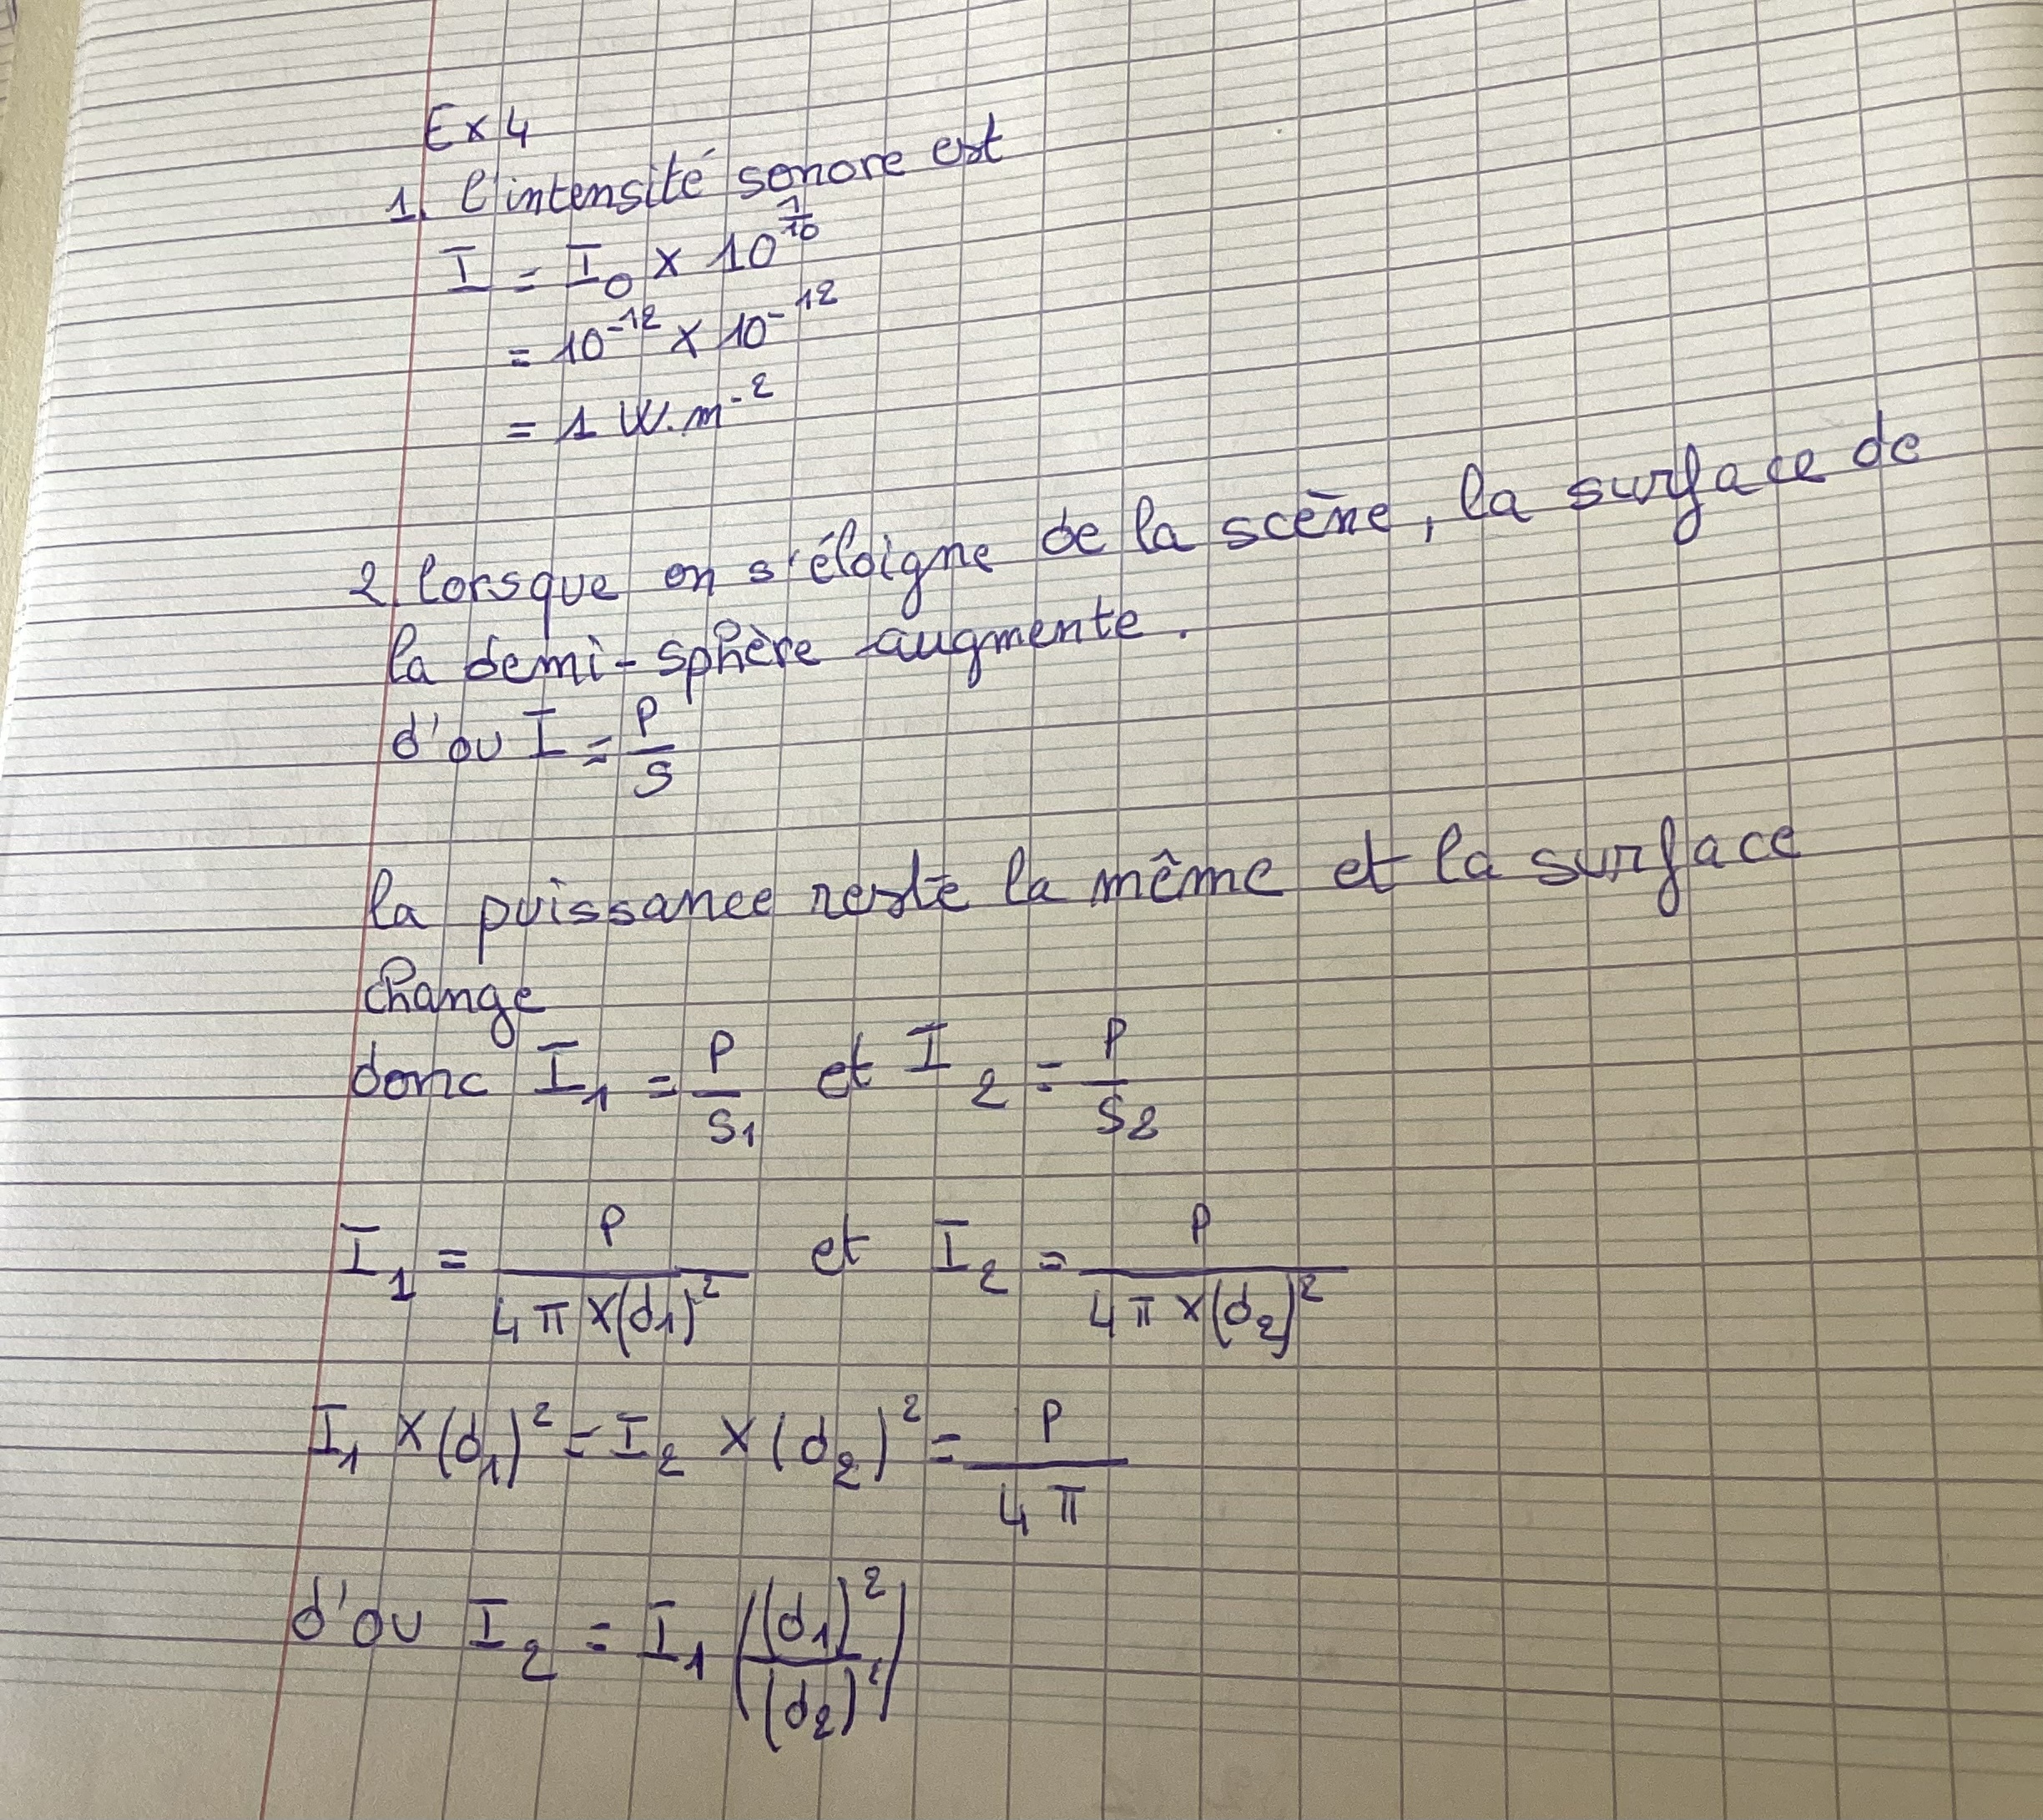 Ex 4
1. l'intensité sonore est
I = I₀ × 10^(1/10)
= 10⁻¹² × 10⁻¹²
= 1 W.m⁻²
2. lorsque on s'éloigne de la scène, la surface de
la demi-sphère augmente.
d'ou I = P/S
la puissance reste la même et la surface
change
donc I₁ = P/S₁ et I₂ = P/S₂
I₁ = P/(4π×(d₁)²) et I₂ = P/(4π×(d₂)²)
I₁ × (d₁)² = I₂ × (d₂)² = P/(4π)
d'ou I₂ = I₁ ((d₁)²/(d₂)²)